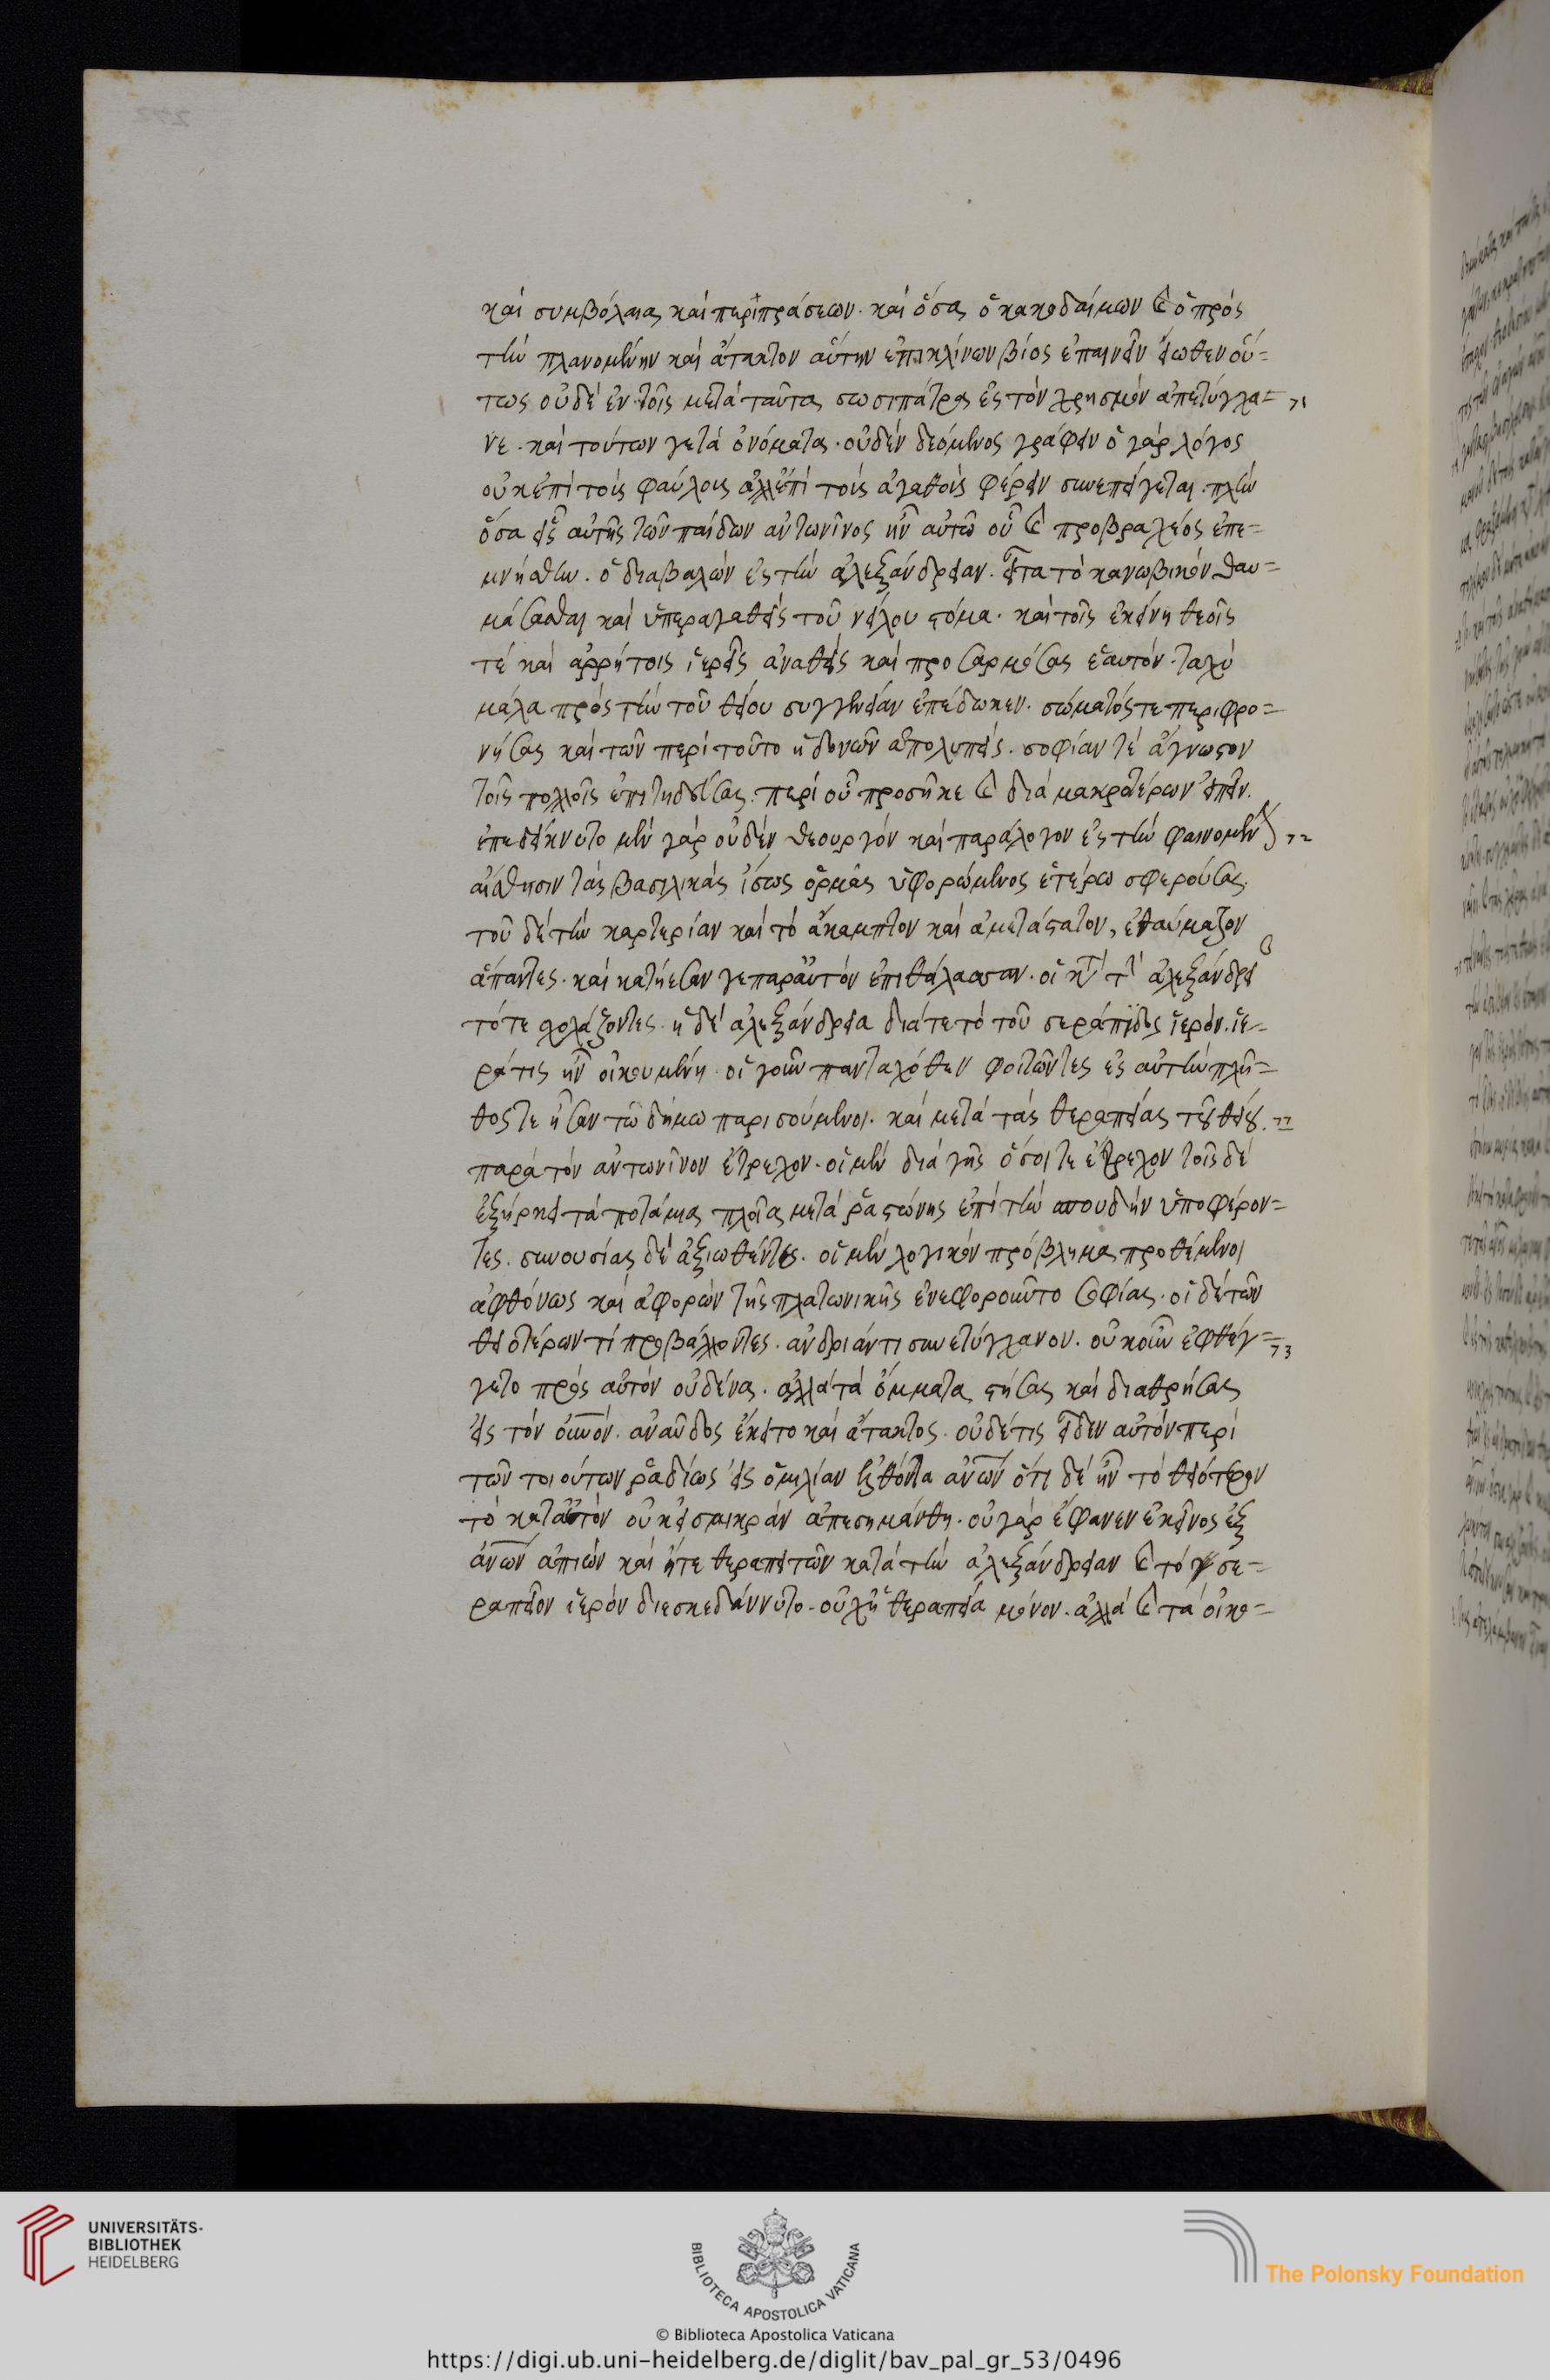 καὶ συμβόλαια καὶ περιπράσεων· καὶ ὅσα ὁ κακοδαίμων καὶ ὁ πρὸς
τὴν πλανομένην καὶ ἄτακτον αὕτην ἐπικλίνων βίος ἐπαινεῖν εἴωθεν οὕ=
τως οὐδὲ ἐν τοῖς μετὰ ταῦτα σωσιπάτρα ἐς τὸν χρησμὸν ἀπετύγχα=
νε· καὶ τούτων γε τὰ ὀνόματα· οὐδὲν δεόμενος γράφειν ὁ γὰρ λόγος
οὐκ ἐπὶ τοῖς φαύλοις ἀλλ ἐπὶ τοῖς ἀγαθοῖς φέρειν συνεπείγεται· πλὴν
ὅσα εἷς αὐτῆς τῶν παίδων ἀντωνῖνος ἦν αὐτῷ οὗ καὶ προβραχέος ἐπε=
μνήσθην· ὁ διαβαλὼν ἐς τὴν ἀλεξάνδρειαν· εἶτα τὸ κανωβικὸν θαυ=
μάσασθαι καὶ ὑπεραγαθεὶς τοῦ νείλου στόμα· καὶ τοῖς ἐκείνη θεοῖς
τὲ καὶ ἀρρήτοις ἱεροῖς ἀναθεὶς καὶ προσαρμόσας ἑαυτὸν· ταχὺ
μάλα πρὸς τὴν τοῦ θείου συγγένειαν ἐπέδωκεν· σώματός τε περιφρο=
νήσας καὶ τῶν περὶ τοῦτο ἡδονῶν ἀπολυπεὶς· σοφίαν τὲ ἄγνωστον
τοῖς πολλοῖς ἐπιτηδεύσας· περὶ οὗ προσῆκε καὶ διὰ μακροτέρων εἰπεῖν·
ἐπεδείκνυτο μὲν γὰρ οὐδὲν θεουργὸν καὶ παράλογον ἐς τὴν φαινομένην
αἴσθησιν τὰς βασιλικὰς ἴσως ὁρμὰς ὑφορώμενος ἑτέρω σφερούσας·
τοῦ δὲ τὴν καρτερίαν καὶ τὸ ἄκαμπτον καὶ ἀμετάστατον, ἐθαύμαζον
ἅπαντες· καὶ κατήεσαν γε παρ αὐτὸν ἐπιθάλασσαν· οἱ κατὰ τὴν ἀλεξάνδρειαν
τότε σχολάζοντες· ἡ δὲ ἀλεξάνδρεια διά τε τὸ τοῦ σεράπιδος ἱερὸν· ἱε=
ρά τις ἦν οἰκουμένη· οἱ γοῦν πανταχόθεν φοιτῶντες ἐς αὐτὴν πλῆ=
θος τε ἦσαν τῷ δήμω παρισούμενοι· καὶ μετὰ τὰς θεραπείας τοῦ θείου·
παρὰ τὸν ἀντωνῖνον ἔτρεχον· οἱ μὲν διὰ γῆς ὅσοι τε ἔτρεχον τοῖς δὲ
ἐξήρκει τὰ ποτάμια πλοῖα μετὰ ῥαστώνης ἐπὶ τὴν σπουδὴν ὑποφέρον=
τες· συνουσίας δὲ ἀξιωθέντες· οἱ μὲν λογικὸν πρόβλημα προθέμενοι
ἀφθόνως καὶ ἀφορὼν τῆς πλατωνικῆς ἐνεφοροῦντο σοφίας· οἱ δὲ τῶν
θειοτέρων τὶ προβάλλοντες· ἀνδριάντι συνετύγχανον· οὐκοῦν ἐφθέγ=
γετο πρὸς αὐτὸν οὐδένα· ἀλλὰ τὰ ὄμματα στήσας καὶ διαθρήσας
εἰς τὸν οὐνὸν· ἄναυδος ἔκειτο καὶ ἄτακτος· οὐδέ τις εἶδεν αὐτὸν περὶ
τῶν τοιούτων ῥαδίως εἰς ὁμιλίαν ἐλθόντα ἀνῶν ὅτι δὲ ἦν τὸ θειότερον
τὸ κατ αὐτὸν οὐκ εἰς μικρὰν ἀπεσημάνθη· οὐ γὰρ ἔφανεν ἐκεῖνος ἐξ
ἀνῶν ἀπιὼν καὶ ἥ τε θεραπεία τῶν κατὰ τὴν ἀλεξάνδρειαν καὶ τὸ σε=
ραπεῖον ἱερὸν διεσκεδάννυτο· οὐχ ἡ θεραπεία μόνον· ἀλλὰ καὶ τὰ οἰκο=
UNIVERSITÄTS-
BIBLIOTHEK
HEIDELBERG
BIBLIOTECA APOSTOLICA VATICANA
The Polonsky Foundation
© Biblioteca Apostolica Vaticana
https://digi.ub.uni-heidelberg.de/diglit/bav_pal_gr_53/0496